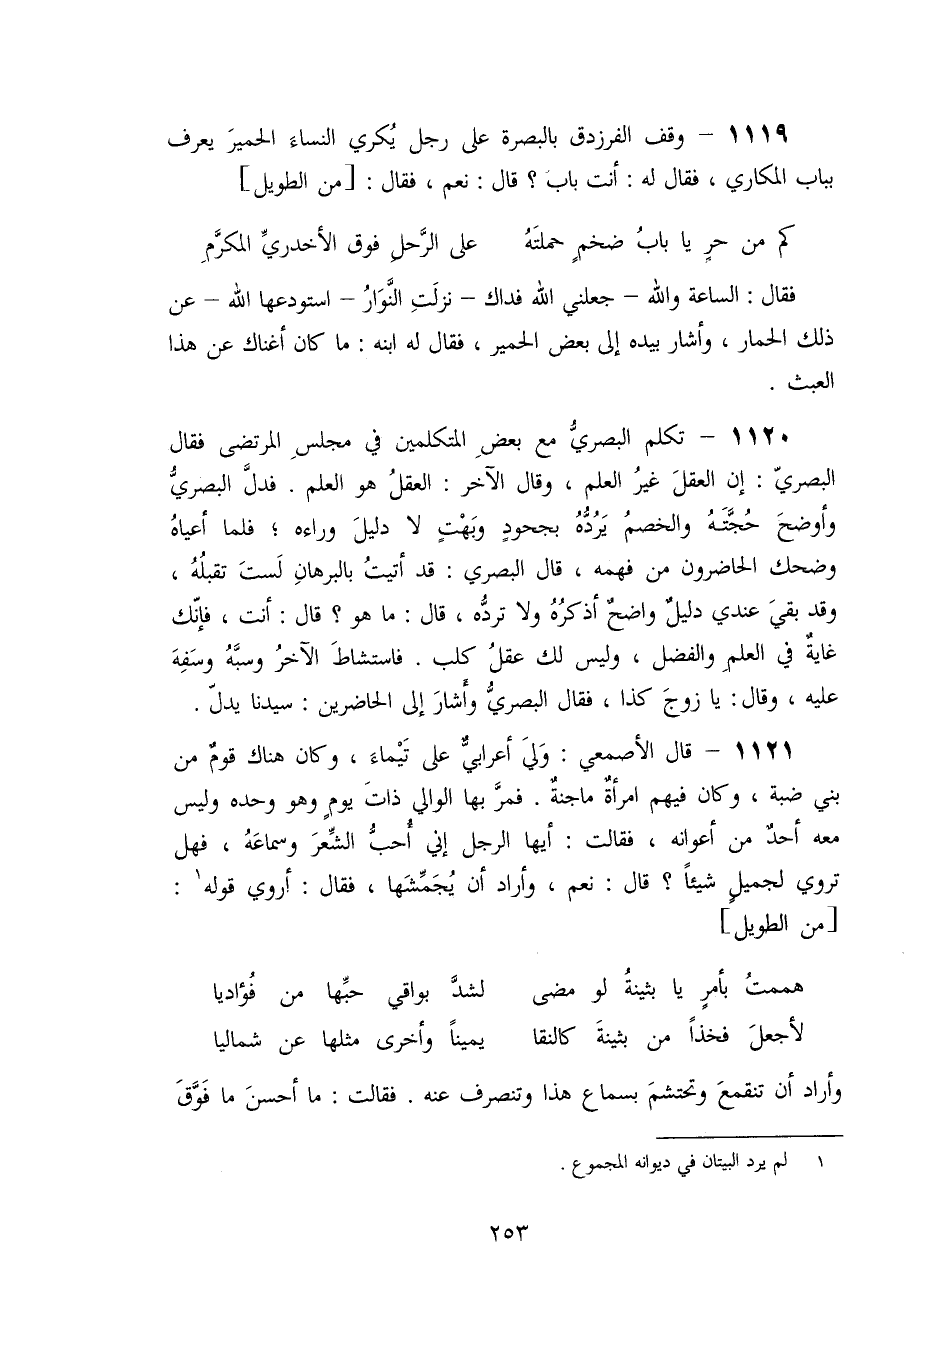 ١١١٩ – وقف الفرزدق بالبصرة على رجل يُكري النساءَ الحميرَ يعرف
بباب المكاري ، فقال له : أنت بابَ ؟ قال : نعم ، فقال : [ من الطويل ]
كم من حرٍ يا بابُ ضخمٍ حملتَهُ على الرَّحلِ فوق الأخدريِّ المكرَّمِ
فقال : الساعة والله – جعلني الله فداك – نزلَتِ النَّوَارُ – استودعها الله – عن
ذلك الحمار ، وأشار بيده إلى بعض الحمير ، فقال له ابنه : ما كان أغناك عن هذا
العبث .
١١٢٠ – تكلم البصريُّ مع بعضِ المتكلمين في مجلسِ المرتضى فقال
البصريّ : إن العقلَ غيرُ العلم ، وقال الآخر : العقلُ هو العلم . فدلَّ البصريُّ
وأوضحَ حُجَّتَهُ والخصمُ يَرُدُّهُ بجحودٍ وبَهْتٍ لا دليلَ وراءه ؛ فلما أعياهُ
وضحك الحاضرون من فهمه ، قال البصري : قد أتيتُ بالبرهانِ لَستَ تقبلُهُ ،
وقد بقيَ عندي دليلٌ واضحٌ أذكرُهُ ولا تردُّه ، قال : ما هو ؟ قال : أنت ، فإنّك
غايةٌ في العلمِ والفضل ، وليس لك عقلُ كلب . فاستشاطَ الآخرُ وسبَّهُ وسَفِهَ
عليه ، وقال : يا زوجَ كذا ، فقال البصريُّ وأَشارَ إلى الحاضرين : سيدنا يدلّ .
١١٢١ – قال الأصمعي : وَليَ أعرابيٌّ على تَيْماءَ ، وكان هناك قومٌ من
بني ضبة ، وكان فيهم امرأةٌ ماجنةٌ . فمرَّ بها الوالي ذاتَ يومٍ وهو وحده وليس
معه أحدٌ من أعوانه ، فقالت : أيها الرجل إني أُحبُّ الشِّعرَ وسماعَهُ ، فهل
تروي لجميلٍ شيئاً ؟ قال : نعم ، وأراد أن يُجَمِّشَها ، فقال : أروي قوله١ :
[ من الطويل ]
هممتُ بأمرٍ يا بثينةُ لو مضى لشدَّ بواقي حبِّها من فُؤاديا
لأجعلَ فخذاً من بثينةَ كالنقا يميناً وأخرى مثلها عن شماليا
وأراد أن تنقمعَ وتحتشمَ بسماع هذا وتنصرف عنه . فقالت : ما أحسنَ ما فَوَّقَ
١ لم يرد البيتان في ديوانه المجموع .
٢٥٣